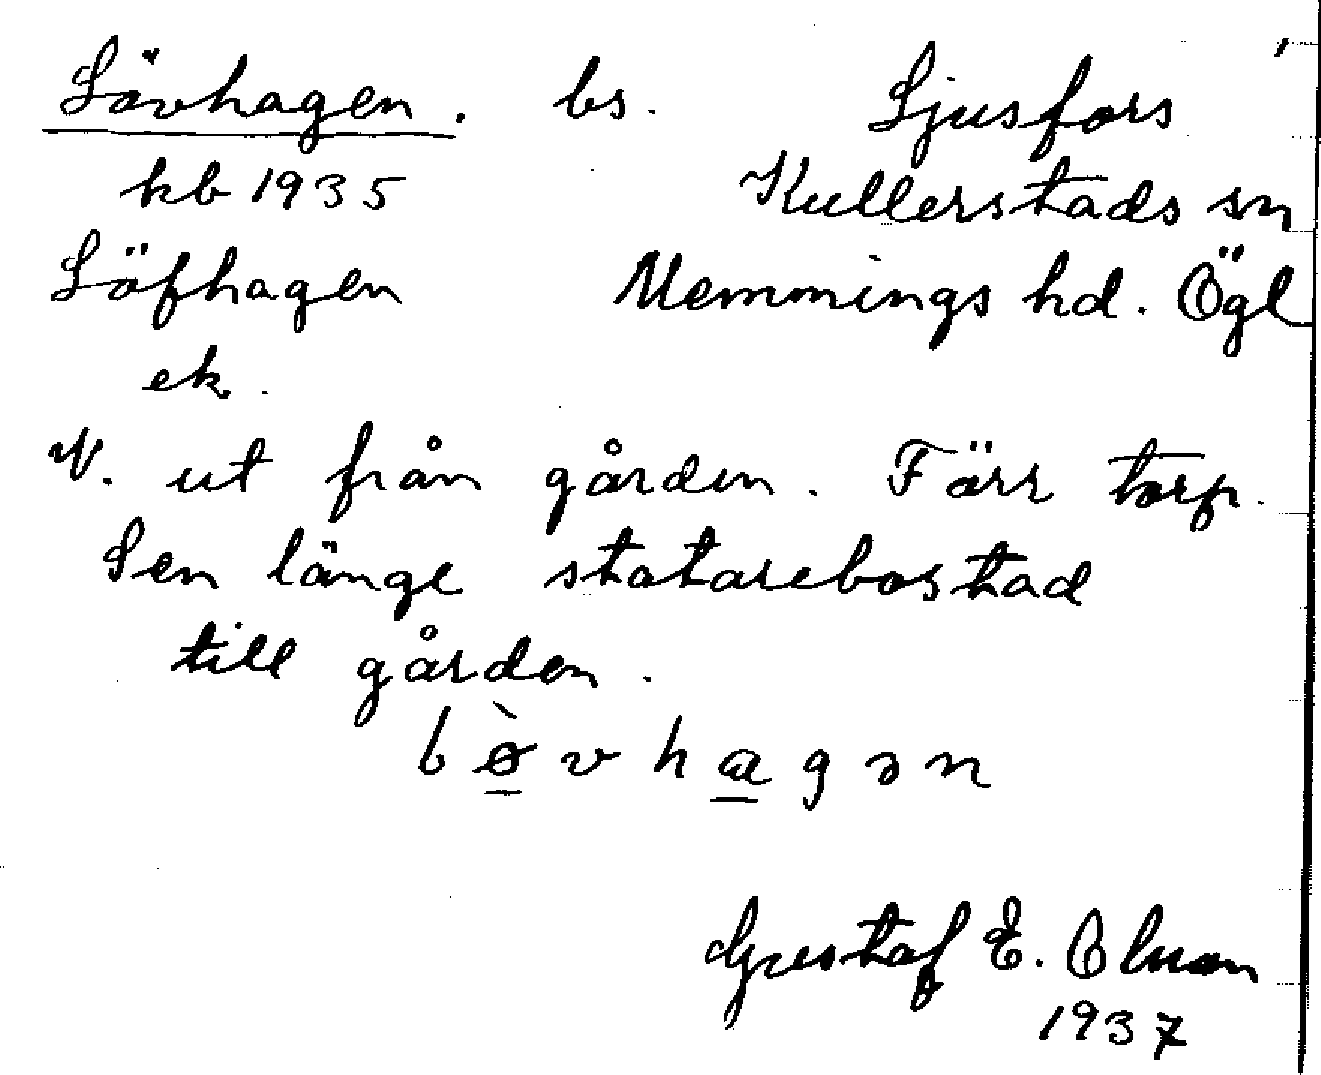 Lövhagen. bs. Ljusfors
kb 1935 Kullerstads sn
Löfhagen Memmings hd. Ögl
ek.
N. ut från gården. Färr torp.
Sen länge statarebostad
till gården.
lø̀vhagən
Gustaf E. Olsson
1937